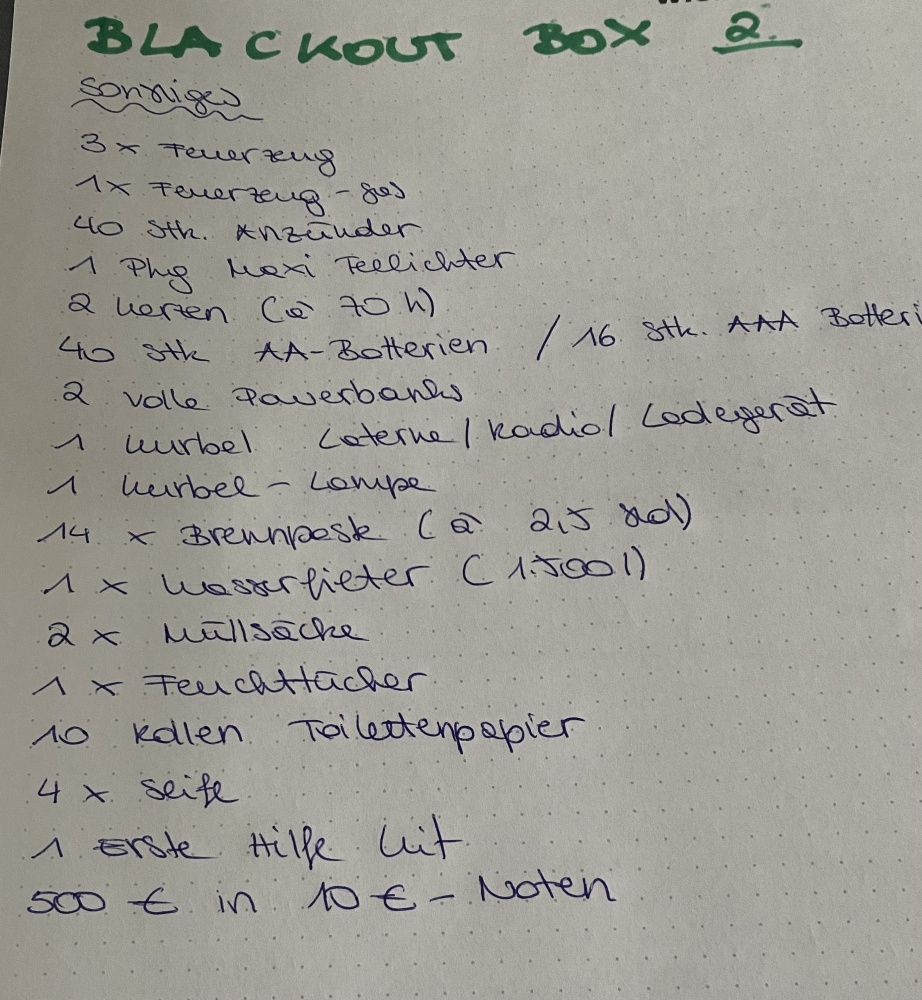 BLACKOUT BOX 2.
Sonstiges
3x Feuerzeug
1x Feuerzeug - gas
40 Stk. Anzünder
1 Pkg Maxi Teelichter
2 Kerzen (à 70 h)
40 Stk AA-Batterien / 16 Stk. AAA Batteri
2 volle Powerbanks
1 Kurbel Laterne / Radio / Ladegerät
1 Kurbel - Lampe
14 x Brennpaste (à 2,5 Std)
1 x Wasserfilter (1.500 l)
2 x Müllsäcke
1 x Feuchttücher
10 Rollen Toilettenpapier
4 x Seife
1 Erste Hilfe Kit
500 € in 10 € - Noten